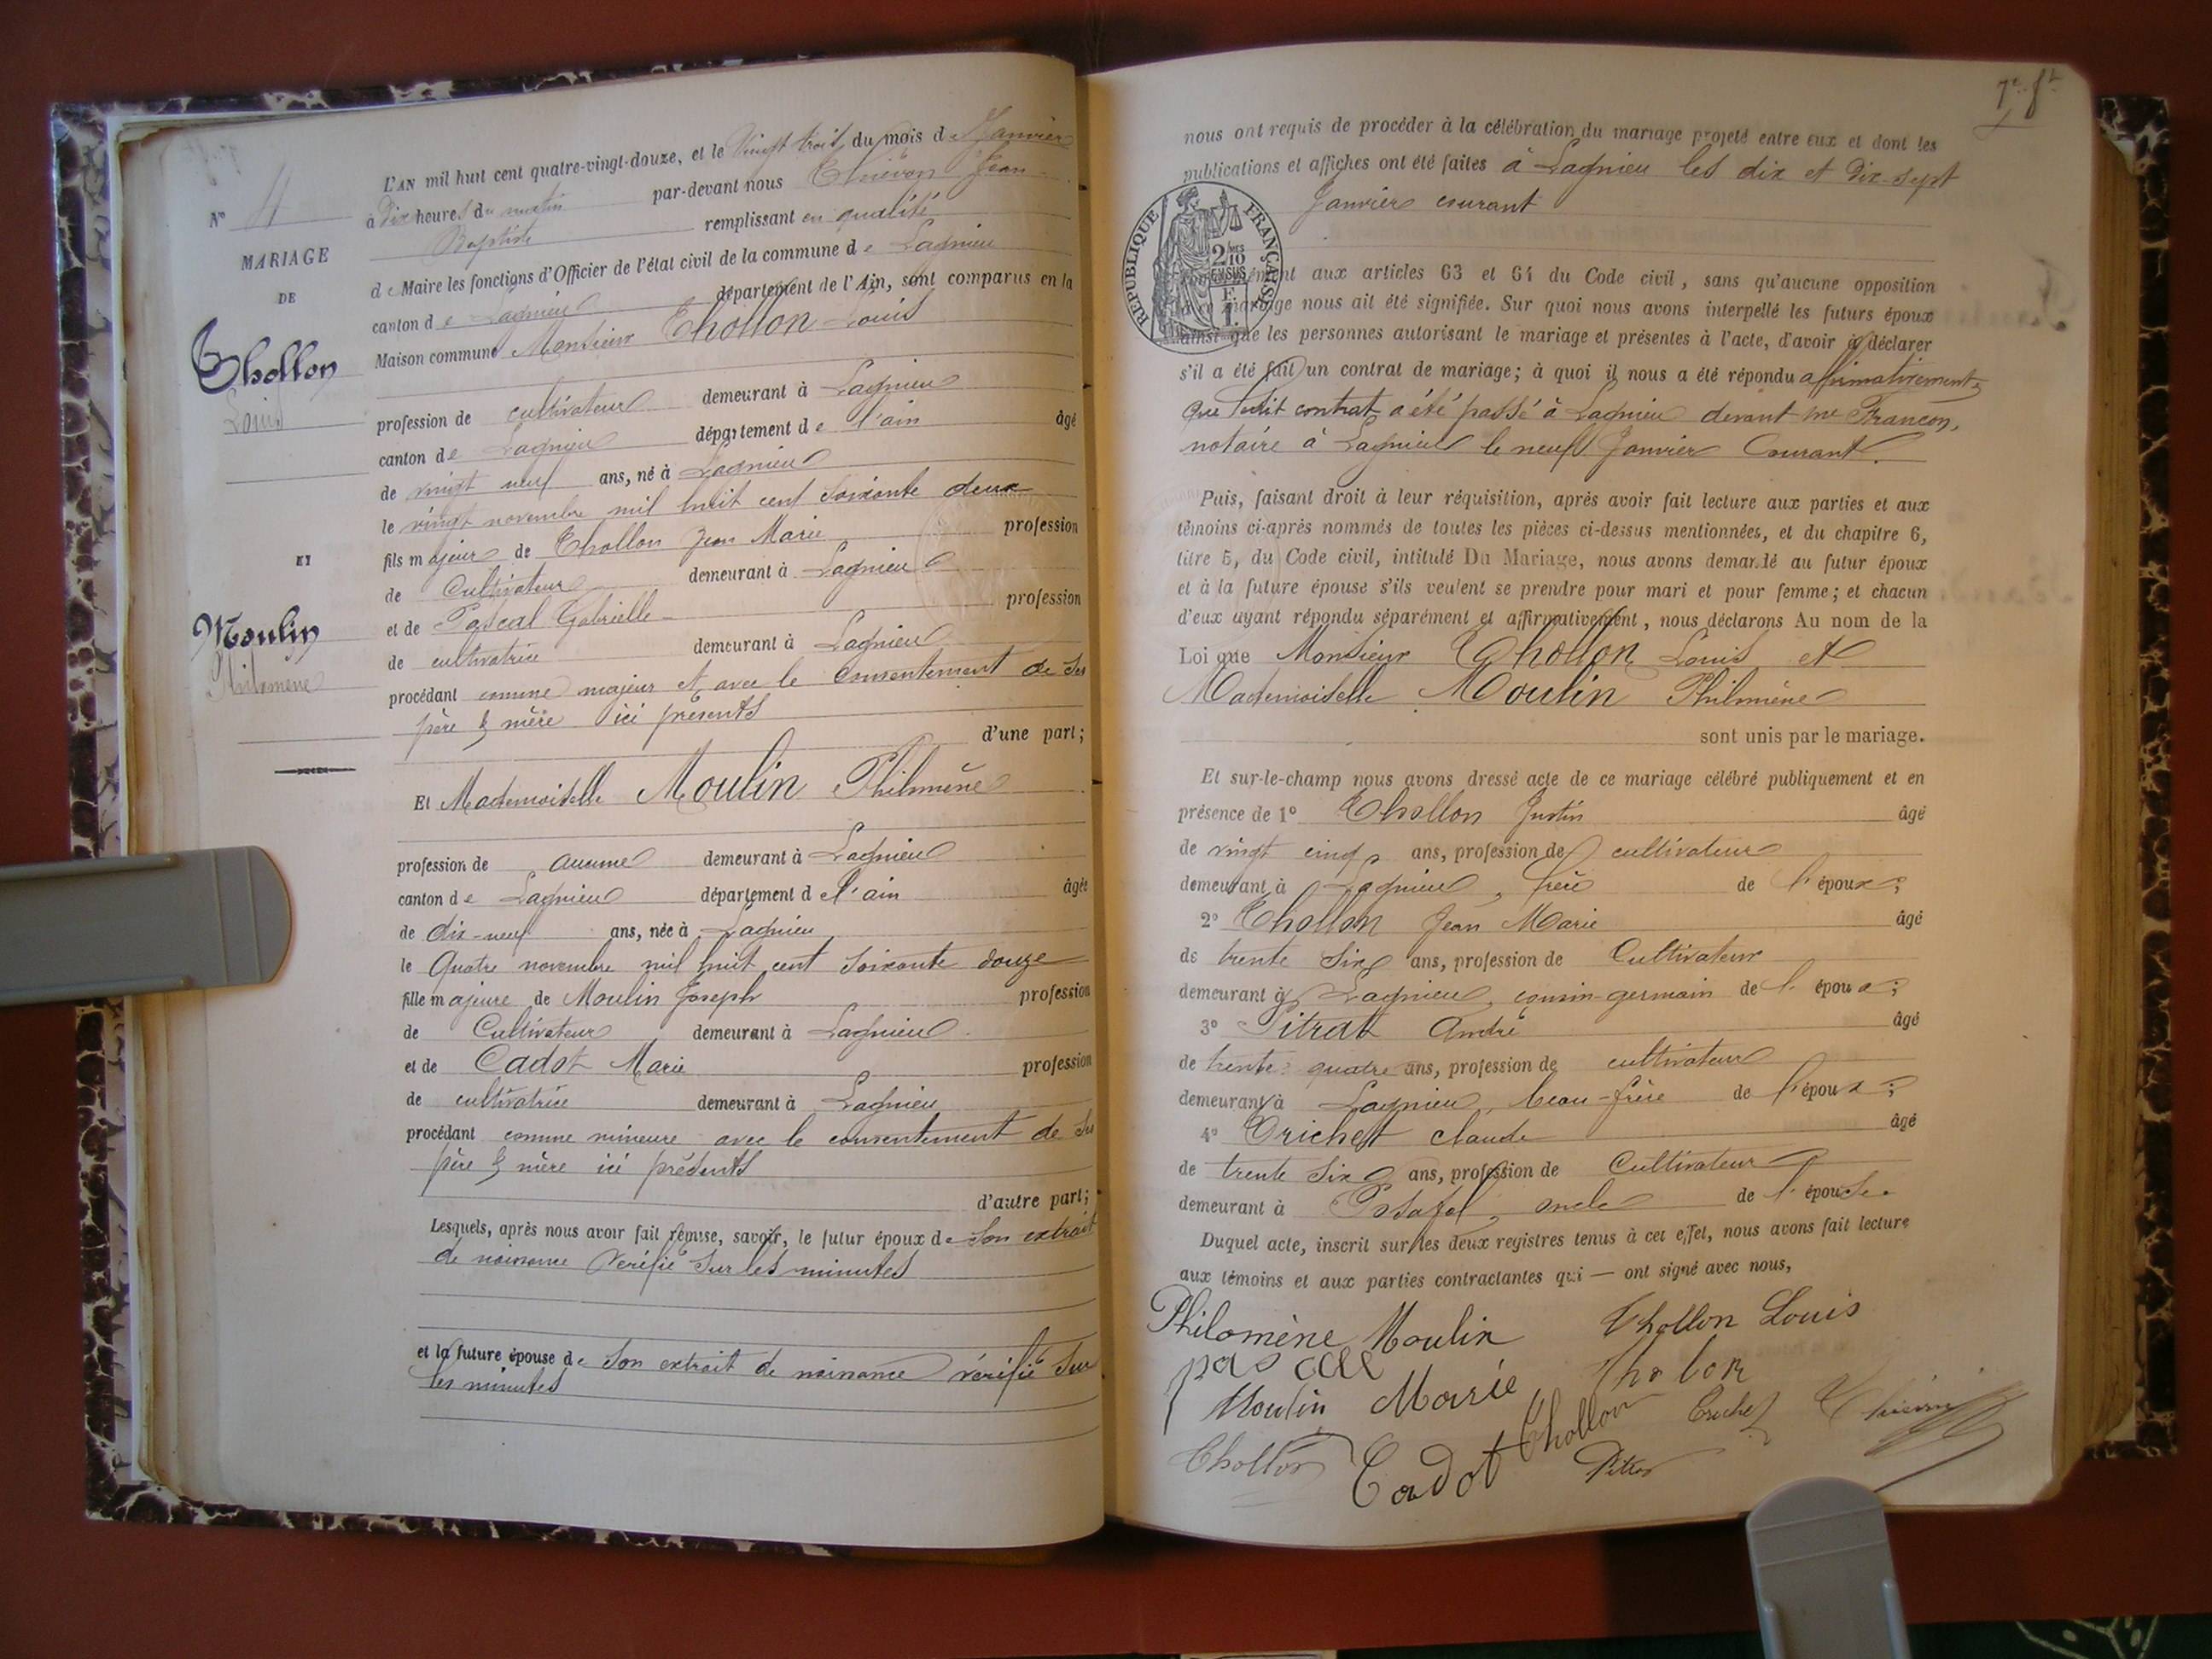 L'AN mil huit cent quatre-vingt-douze, et le Vingt trois du mois de Janvier
à Dix heures du matin par-devant nous Thiévon Jean
Baptiste remplissant en qualité
de Maire les fonctions d'Officier de l'état civil de la commune de Lagnieu
canton de Lagnieu département de l'Ain, sont comparus en la
Maison commune Monsieur Thollon Louis
profession de cultivateur demeurant à Lagnieu
canton de Lagnieu département de l'ain âgé
de vingt neuf ans, né à Lagnieu
le vingt novembre mil huit cent soixante deux
fils majeur de Thollon Jean Marie profession
de Cultivateur demeurant à Lagnieu
et de Pascal Gabrielle profession
de cultivatrice demeurant à Lagnieu
procédant comme majeur et avec le consentement de ses
père & mère ici présents
d'une part;
Et Mademoiselle Moulin Philomène
profession de aucune demeurant à Lagnieu
canton de Lagnieu département de l'ain âgée
de dix-neuf ans, née à Lagnieu
le Quatre novembre mil huit cent soixante douze
fille majeure de Moulin Joseph profession
de Cultivateur demeurant à Lagnieu
et de Cadot Marie profession
de cultivatrice demeurant à Lagnieu
procédant comme mineure avec le consentement de ses
père & mère ici présents
d'autre part;
Lesquels, après nous avoir fait remise, savoir, le futur époux de Son extrait
de naissance Vérifié sur les minutes
et la future épouse de Son extrait de naissance vérifié sur
les minutes
N° 4
MARIAGE
DE
Thollon
Louis
ET
Moulin
Philomène
7e ft
nous ont requis de procéder à la célébration du mariage projeté entre eux et dont les
publications et affiches ont été faites à Lagnieu les dix et Dix-sept
Janvier courant
REPUBLIQUE FRANÇAISE
2/10MES
EN SUS
F.
1.
aux articles 63 et 64 du Code civil, sans qu'aucune opposition
mariage nous ait été signifiée. Sur quoi nous avons interpellé les futurs époux
ainsi que les personnes autorisant le mariage et présentes à l'acte, d'avoir à déclarer
s'il a été fait un contrat de mariage; à quoi il nous a été répondu affirmativement &
que ledit contrat a été passé à Lagnieu devant me Francon,
notaire à Lagnieu le neuf Janvier Courant.
Puis, faisant droit à leur réquisition, après avoir fait lecture aux parties et aux
témoins ci-après nommés de toutes les pièces ci-dessus mentionnées, et du chapitre 6,
titre 5, du Code civil, intitulé Du Mariage, nous avons demandé au futur époux
et à la future épouse s'ils veulent se prendre pour mari et pour femme; et chacun
d'eux ayant répondu séparément et affirmativement, nous déclarons Au nom de la
Loi que Monsieur Thollon Louis et
Mademoiselle Moulin Philomène
sont unis par le mariage.
Et sur-le-champ nous avons dressé acte de ce mariage célébré publiquement et en
présence de 1° Thollon Justin âgé
de vingt cinq ans, profession de cultivateur
demeurant à Lagnieu, frère de l'époux;
2° Thollon Jean Marie âgé
de trente six ans, profession de Cultivateur
demeurant à Lagnieu, cousin-germain de l'époux;
3° Pitrat André âgé
de trente quatre ans, profession de cultivateur
demeurant à Lagnieu, beau-frère de l'époux;
4° Crichet claude âgé
de trente six ans, profession de Cultivateur
demeurant à Posafol, oncle de l'épouse.
Duquel acte, inscrit sur les deux registres tenus à cet effet, nous avons fait lecture
aux témoins et aux parties contractantes qui — ont signé avec nous,
Philomène Moulin Thollon Louis
pascal Tholon
Moulin Marie Thollon Crichet
Thollon Cadot Pitrat